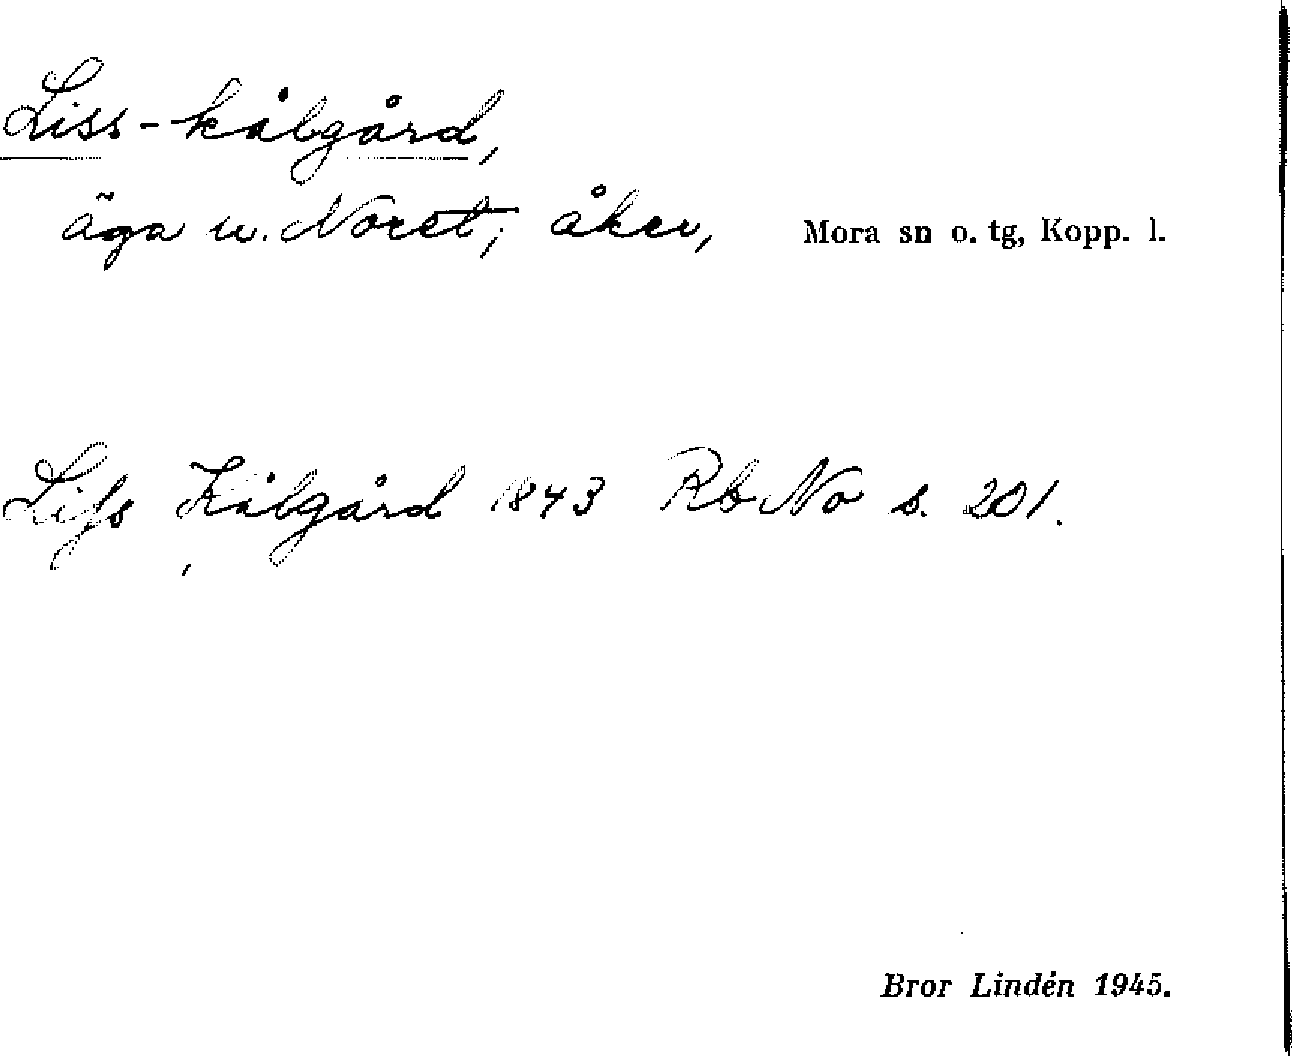 Liss-kålgård,
äga u. Noret; åker, Mora sn o. tg, Kopp. l.
Lifs Kålgård 1843 Rb No s. 201.
Bror Lindén 1945.